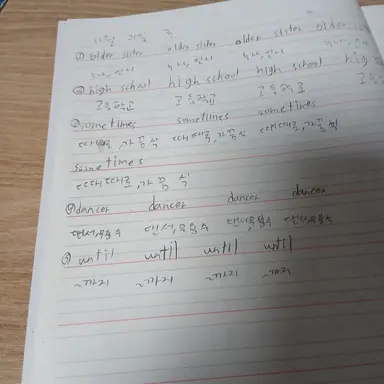 ① older sister older sister older sister older
누나, 언니 누나, 언니 누나, 언니
② high school high school high school high
고등학교 고등학교 고등학교 고등
③ sometimes sometimes sometimes
때때로, 가끔씩 때때로, 가끔씩 때때로, 가끔씩
sometimes
때때로, 가끔 씩
④ dancer dancer dancer dancer
댄서, 무용수 댄서, 무용수 댄서, 무용수 댄서, 무용수
⑤ until until until until
~까지 ~까지 ~까지 ~까지